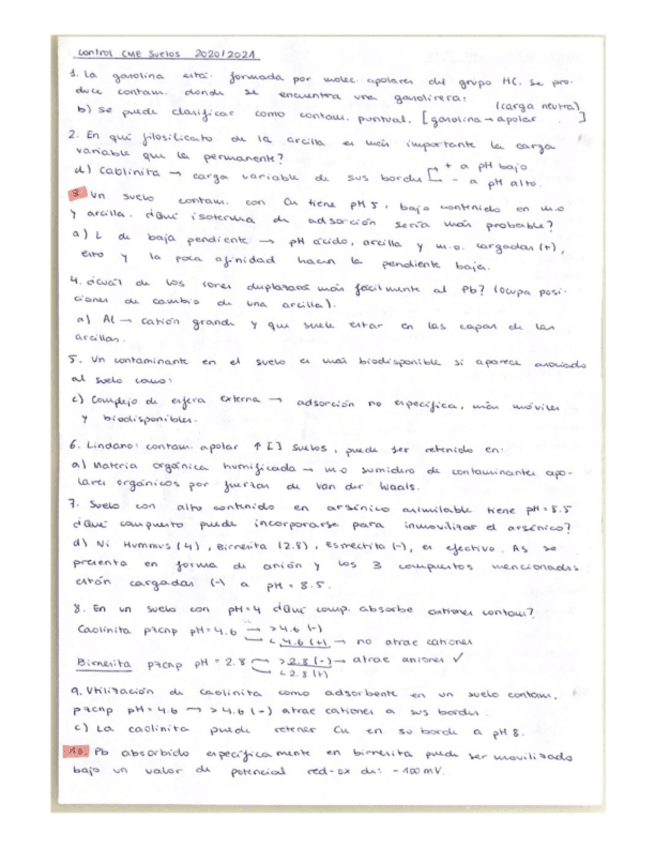 Control CMB Suelos 2020/2021
1. La gasolina está formada por molec. apolares del grupo HC. Se pro-
duce contam. donde se encuentra una gasolinera:
b) Se puede clasificar como contam. puntual. [gasolina → apolar (carga neutra)]
2. En qué filosilicato de la arcilla es más importante la carga
variable que la permanente?
d) Caolinita → carga variable de sus bordes [+ a pH bajo
- a pH alto.
3. Un suelo contam. con Cu tiene pH 5, bajo contenido en m.o
y arcilla. ¿Qué isoterma de adsorción sería más probable?
a) L de baja pendiente → pH ácido, arcilla y m.o. cargadas (+),
esto y la poca afinidad hacen la pendiente baja.
4. ¿Cuál de los iones desplazará más fácilmente al Pb? (Ocupa posi-
ciones de cambio de una arcilla).
a) Al → catión grande y que suele estar en las capas de las
arcillas.
5. Un contaminante en el suelo es más biodisponible si aparece asociado
al suelo como:
c) Complejo de esfera externa → adsorción no específica, más móviles
y biodisponibles.
6. Lindano: contam. apolar ↑ [ ] suelos, puede ser retenido en:
a) Materia orgánica humificada → m.o sumidero de contaminantes apo-
lares orgánicos por fuerzas de Van der Waals.
7. Suelo con alto contenido en arsénico asimilable tiene pH = 8.5
¿Qué compuesto puede incorporarse para inmovilizar el arsénico?
d) Ni Hummus (4), Birnesita (2.8), Esmectita (-), es efectivo. As se
presenta en forma de anión y los 3 compuestos mencionados
están cargadas (-) a pH = 8.5.
8. En un suelo con pH=4 ¿Qué comp. absorbe cationes contam?
Caolinita pzcnp pH = 4.6 → >4.6 (-)
< 4.6 (+) → no atrae cationes
Birnesita pzcnp pH = 2.8 → >2.8 (-) → atrae aniones ✓
< 2.8 (+)
9. Utilización de caolinita como adsorbente en un suelo contam.
pzcnp pH = 4.6 → >4.6 (-) atrae cationes a sus bordes.
c) La caolinita puede retener Cu en su borde a pH 8.
10. Pb absorbido específicamente en birnesita puede ser movilizado
bajo un valor de potencial red-ox de: -100 mV.